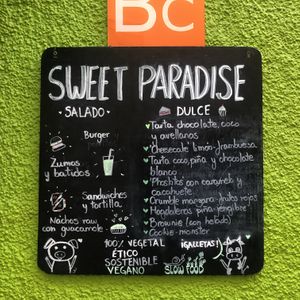 BC
SWEET PARADISE
SALADO
Burger
Zumos
y batidos
Sandwiches
y tortilla
Nachos raw
con guacamole
DULCE
Tarta chocolate, coco
y avellanas
Cheesecake limón-frambuesa
Tarta coco, piña y chocolate
blanco
Phoskitos con caramelo y
cacahuete
Crumble mango-frutos rojos
Magdalenas piña-jengibre
Brownie (con helado)
Cookie-monster
100% VEGETAL
ÉTICO
SOSTENIBLE
VEGANO
¡GALLETAS!
SLOW FOOD